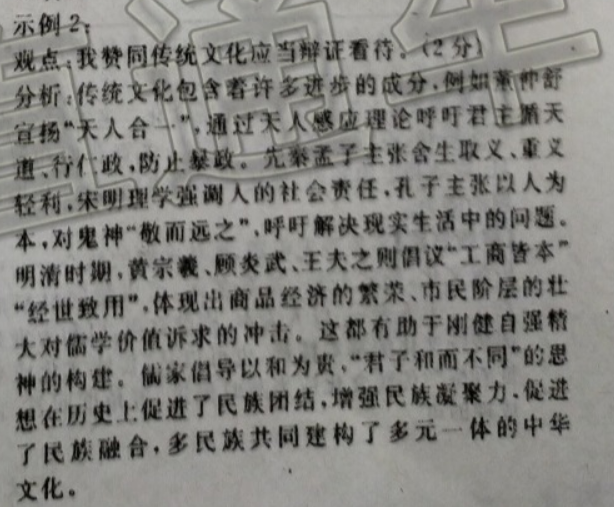 示例2:
观点:我赞同传统文化应当辩证看待。(2分)
分析:传统文化包含着许多进步的成分,例如董仲舒
宣扬“天人合一”,通过天人感应理论呼吁君主循天
道、行仁政,防止暴政。先秦孟子主张舍生取义、重义
轻利,宋明理学强调人的社会责任,孔子主张以人为
本,对鬼神“敬而远之”,呼吁解决现实生活中的问题。
明清时期,黄宗羲、顾炎武、王夫之则倡议“工商皆本”
“经世致用”,体现出商品经济的繁荣、市民阶层的壮
大对儒学价值诉求的冲击。这都有助于刚健自强精
神的构建。儒家倡导以和为贵,“君子和而不同”的思
想在历史上促进了民族团结,增强民族凝聚力,促进
了民族融合,多民族共同建构了多元一体的中华
文化。